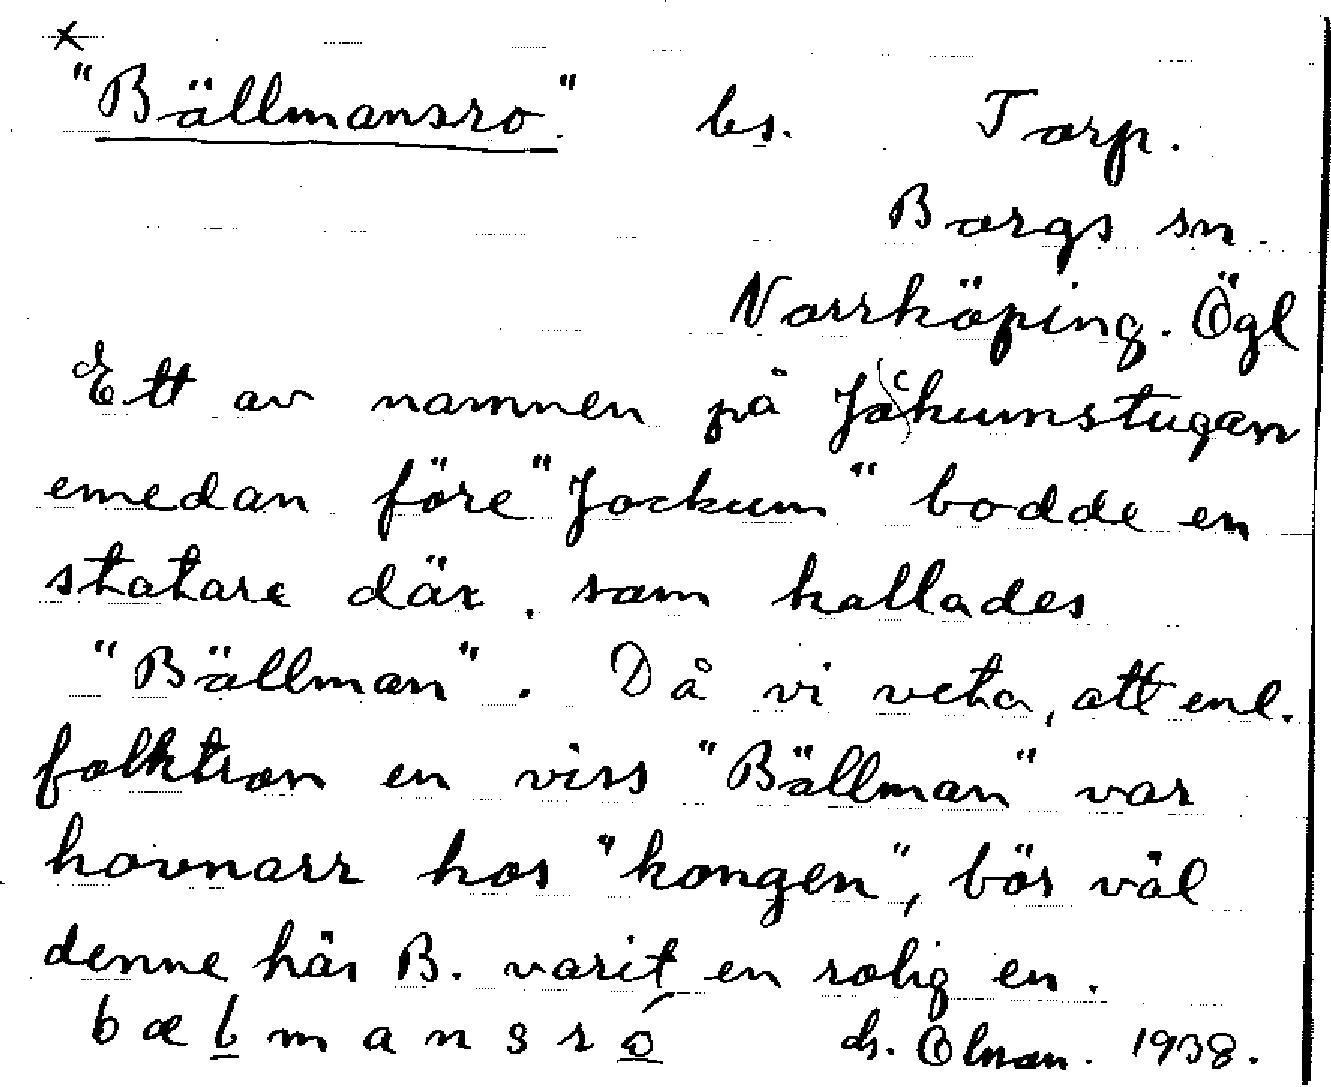 ×
"Bällmansro". bs. Torp.
Borgs sn.
Norrköping. Ögl
Ett av namnen på Jockumstugan
emedan före "Jockum" bodde en
statare där, som kallades
"Bällman". Då vi veta, att enl.
folktron en viss "Bällman" var
hovnarr hos "kongen", bör väl
denne här B. varit en rolig en.
bælmansró 1938.